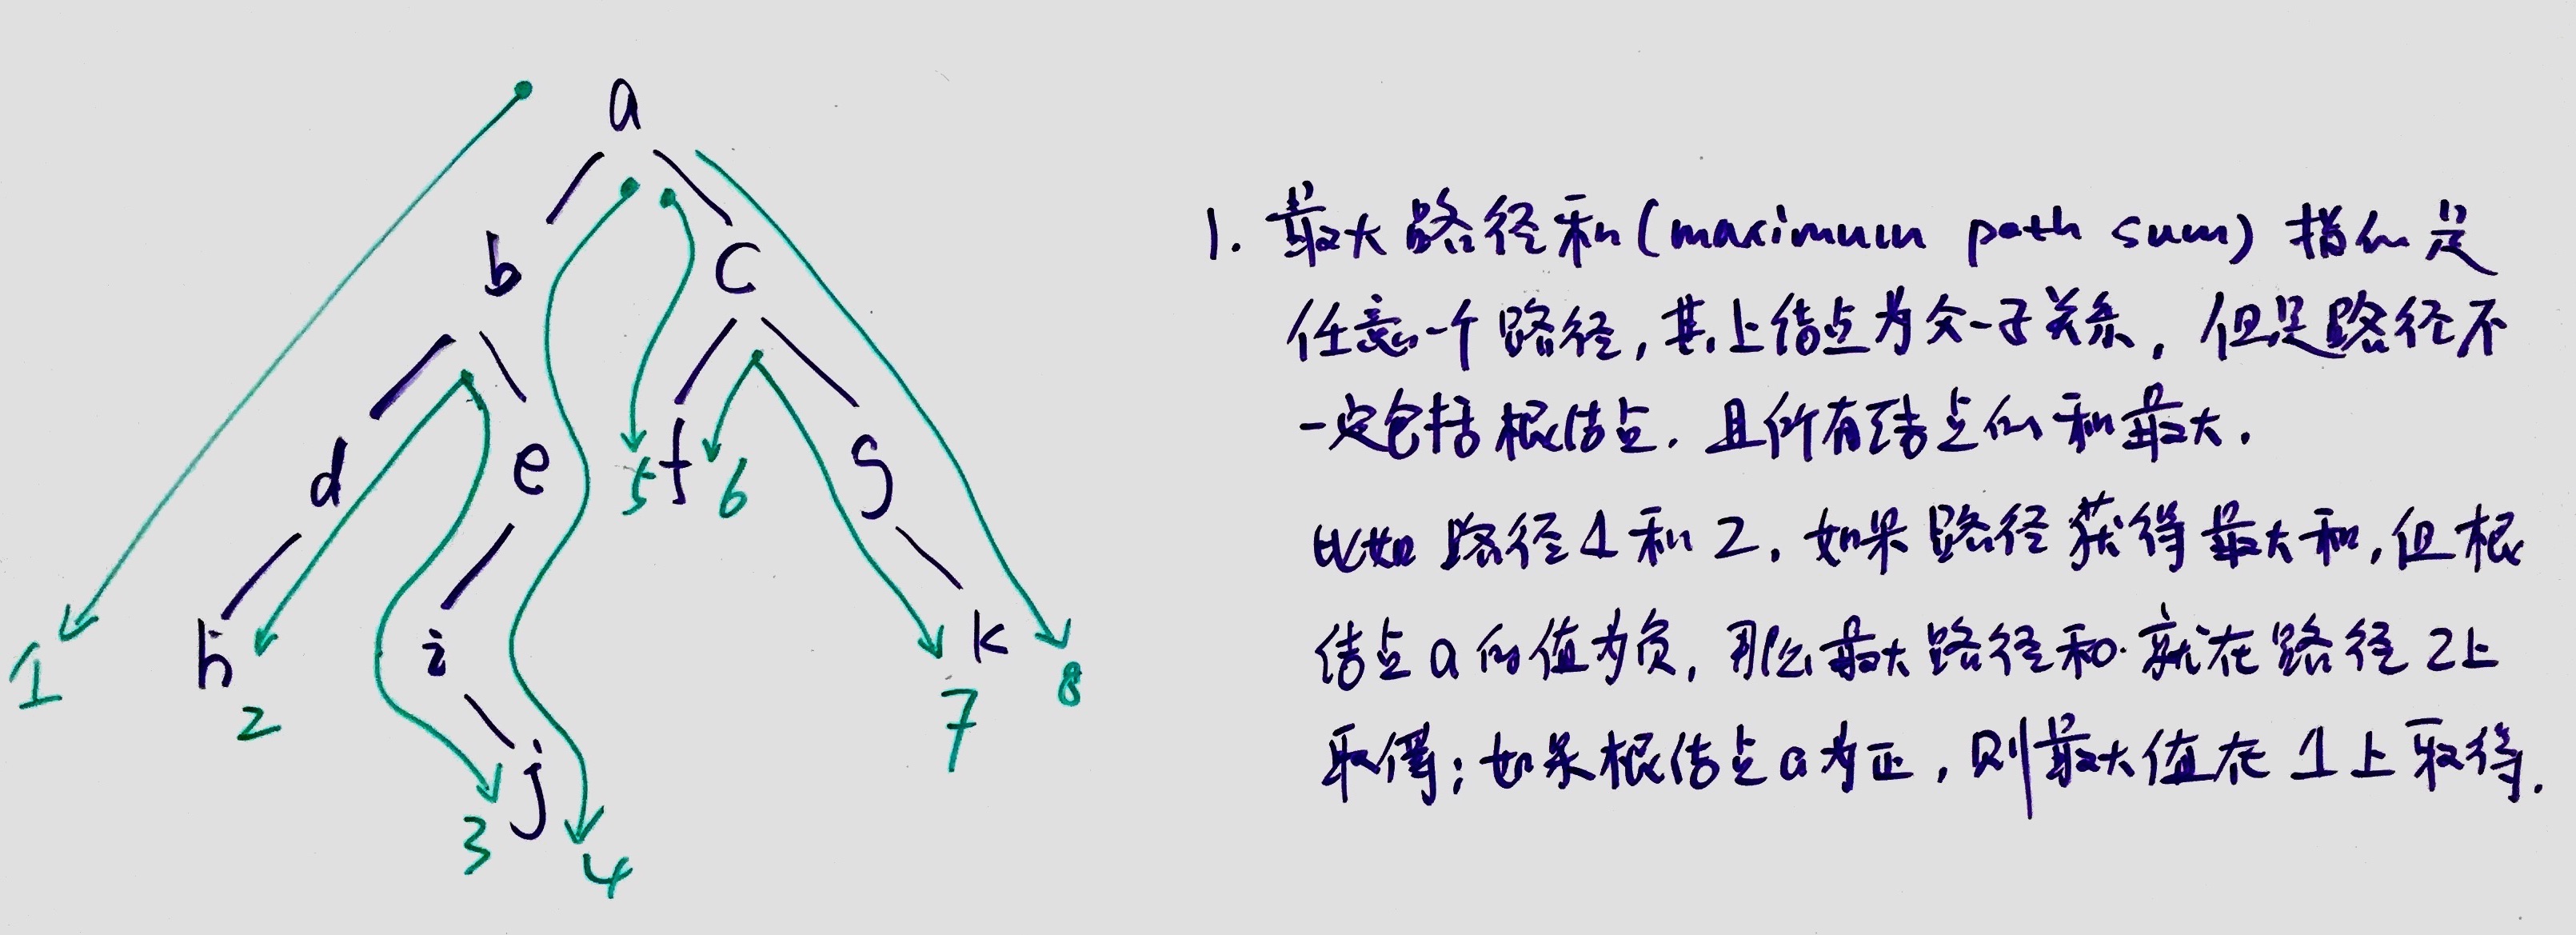 a
b
c
d
e
f
g
h
i
k
j
1
2
3
4
5
6
7
8
1. 最大路径和(maximum path sum) 指的是
任意一个路径,其上结点为父-子关系,但是路径不
一定包括根结点.且所有结点的和最大.
比如路径1和2,如果路径获得最大和,但根
结点a的值为负,那么最大路径和就在路径2上
取得;如果根结点a为正,则最大值在1上取得.